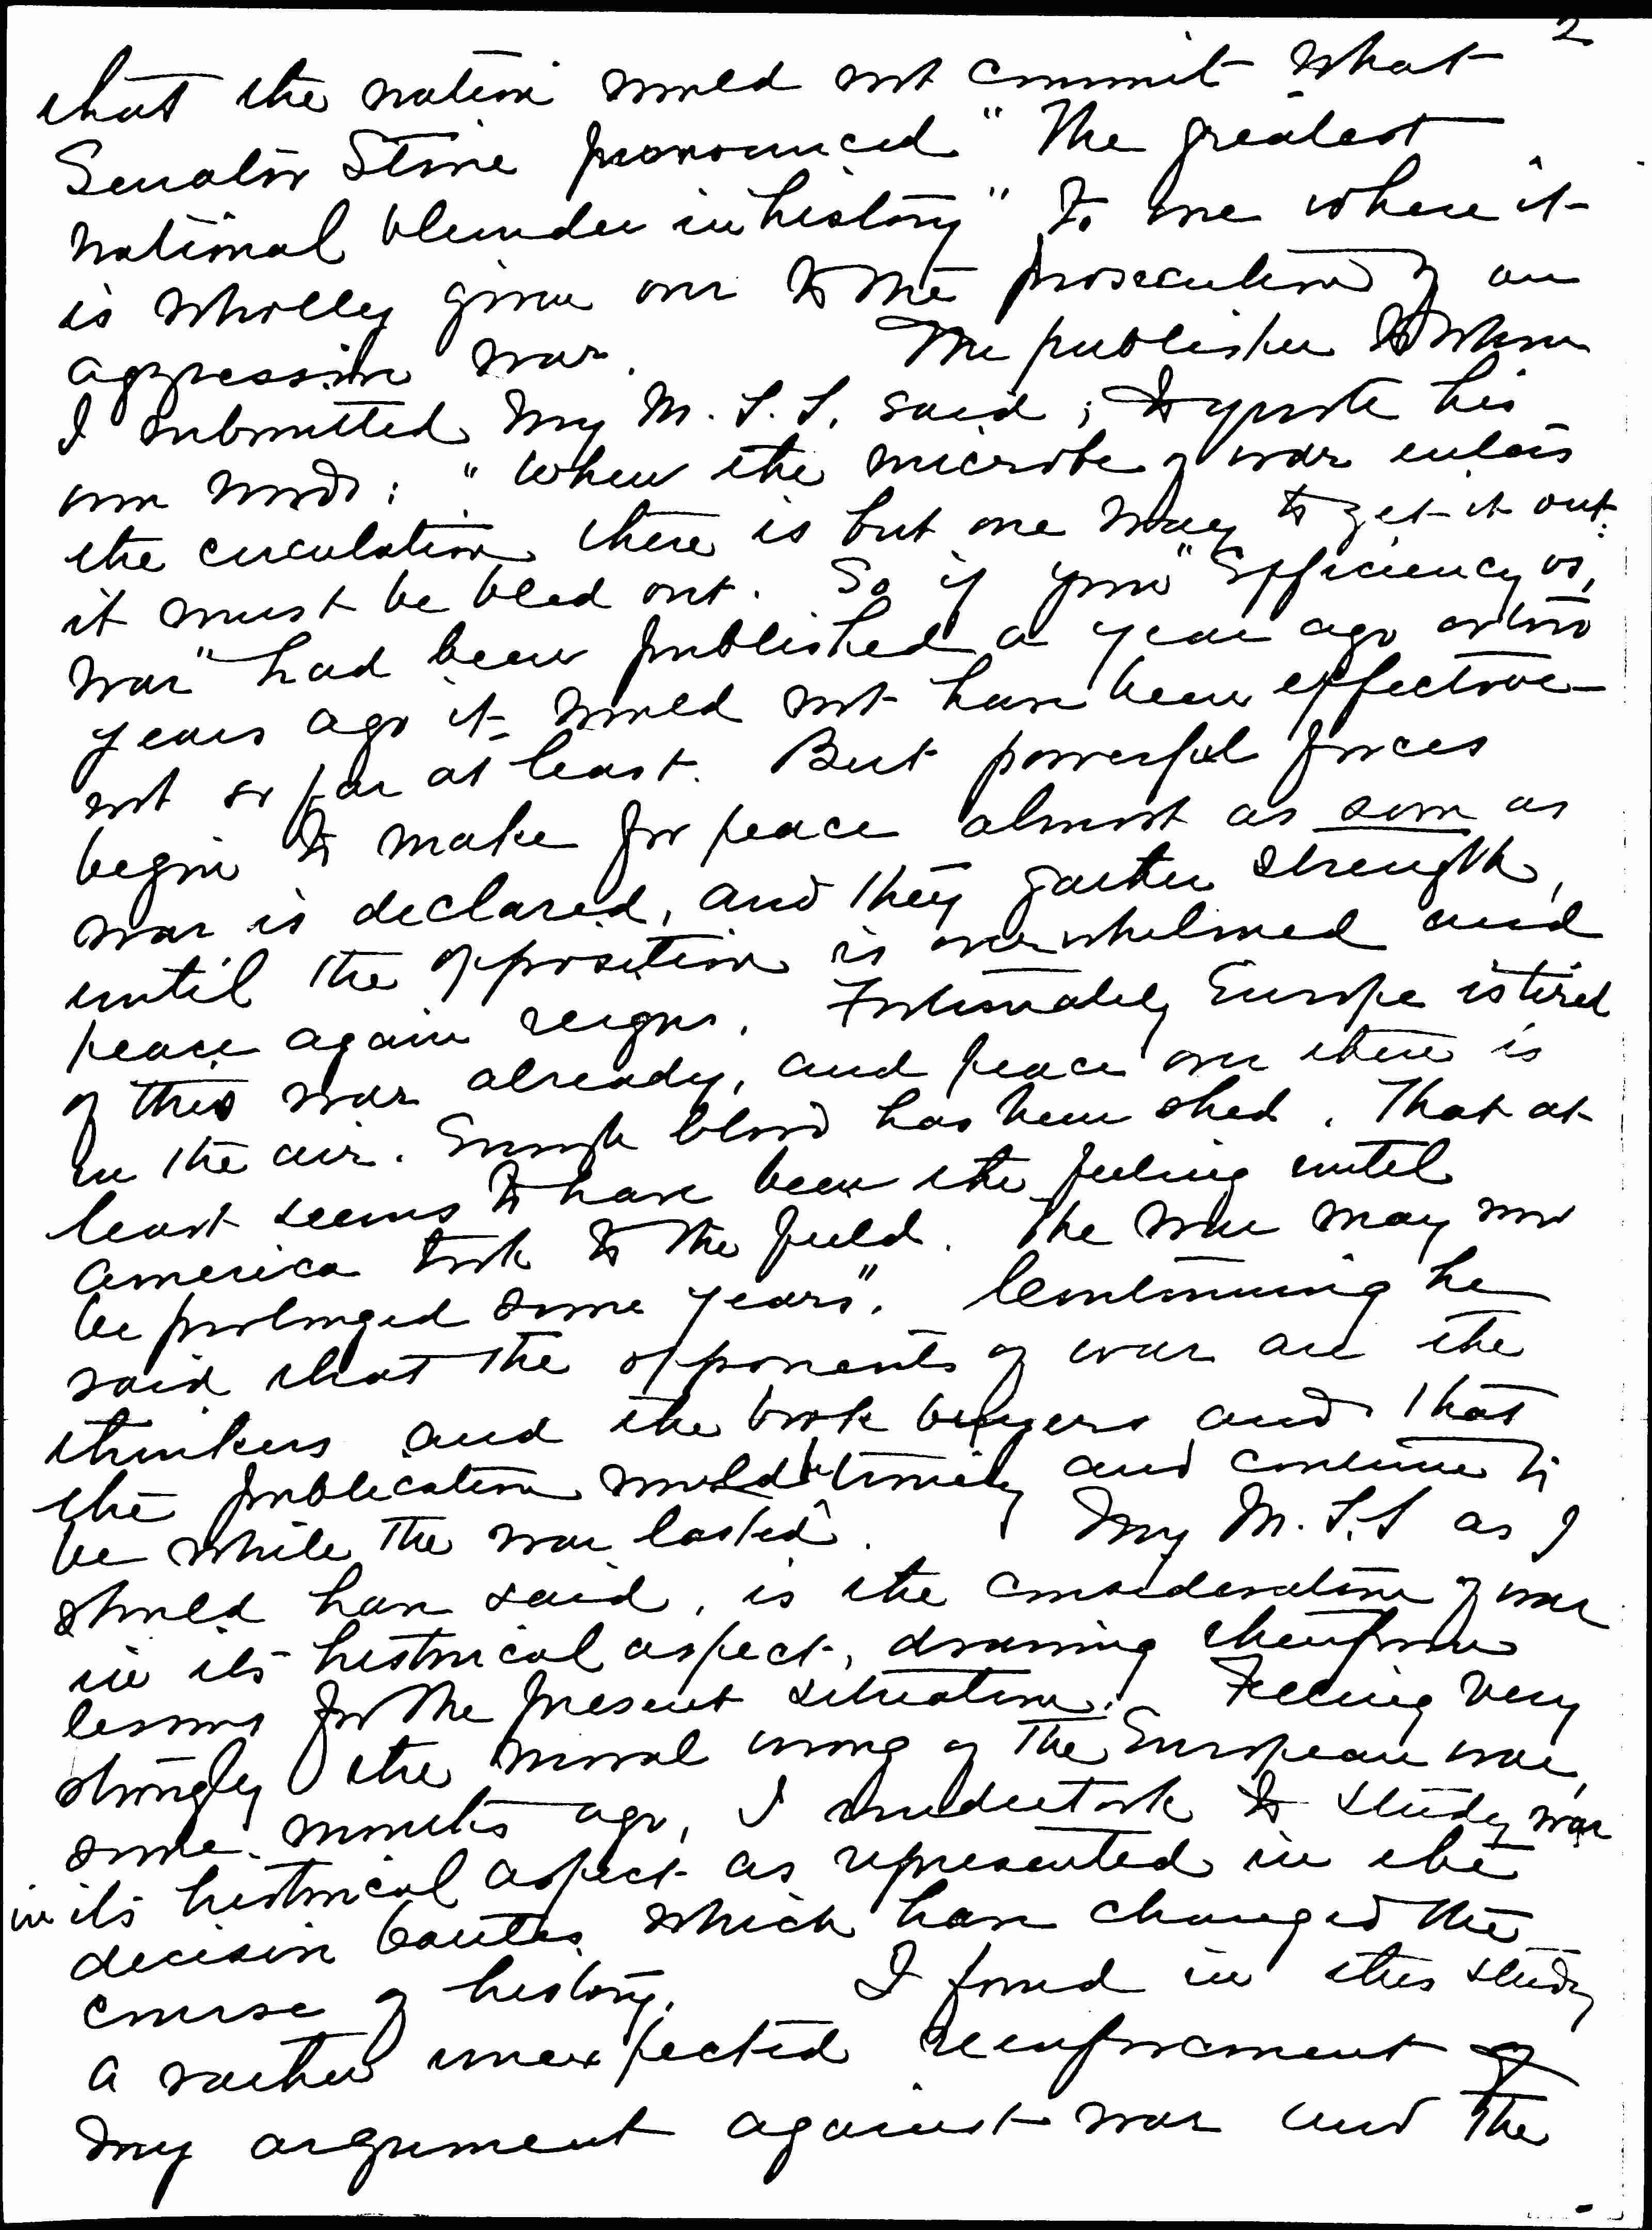 2
that the nation would not commit what
Senator Stone pronounced "The greatest
national blunder in history" to one where it
is wholly given over to the prosecution of an
aggressive war. The publisher to whom
I submitted my M.S.S. said; to quote his
own words: "When the microbe of war enters
the circulation there is but one way to get it out:
it must be bled out. So if your "Efficiency vs,
war" had been published a year ago or two
years ago it would not have been effective
not so far at least. But powerful forces
begin to make for peace almost as soon as
war is declared, and they gather strength,
until the opposition is overwhelmed and
peace again reigns. Fortunately Europe is tired
of this war already, and peace over there is
in the air. Enough blood has been shed. That at
least seems to have been the feeling until
America took to the field. The war may now
be prolonged some years". Continuing he
said that the opponents of war are the
thinkers and the book buyers and that
the publication would be timely and continue to
be while the war lasted. My M.S.S as I
should have said, is the consideration of war
in its historical aspect, drawing therefrom
lessons for the present situation. Feeling very
strongly the moral wrong of the European war,
some months ago, I undertook to study war
in its historical aspect as represented in the
decisive battles which have changed the
course of history. I found in this study
a rather unexpected reenforcement of
my argument against war and the